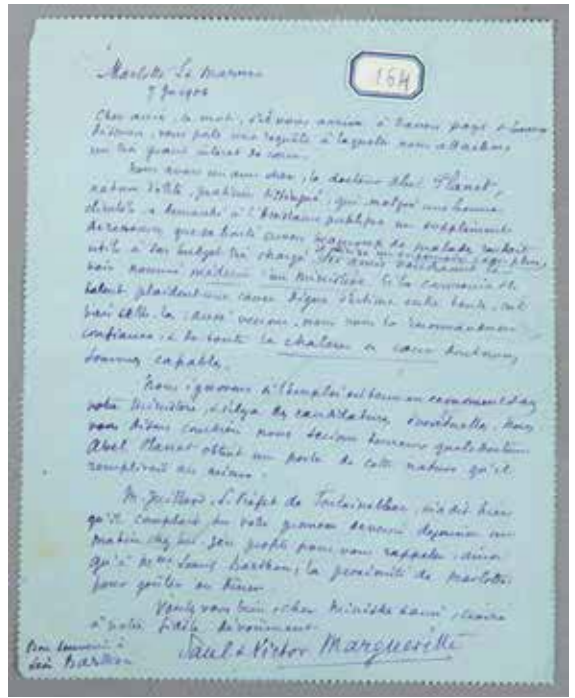 Marlotte
164
Cher ami, le mot, s'il vous arrive à travers pays
vous porte une requête à laquelle nous attachons
un très grand intérêt de cœur.
Nous avons un ami cher, le docteur Abel Planat,
nature d'élite, praticien distingué, qui malgré une bonne
clientèle a demandé à l'Assistance publique un supplément
de ressources que sa bonté envers beaucoup de malades rendait
utile à son budget très chargé. Ses amis voudraient le
voir nommé médecin un ministère. Si la camaraderie et le
talent plaident une cause digne d'estime entre toutes, c'est
bien celle-là : aussi venons-nous vous la recommander en
confiance, et de toute la chaleur de cœur dont nous
sommes capables.
Nous ignorons si l'emploi est tenu en ce moment dans
votre ministère, s'il y a des candidatures éventuelles. Nous
vous disons combien nous serions heureux que le docteur
Abel Planat obtînt un poste de cette nature qu'il
remplirait au mieux.
M. Juillard, S. Préfet de Fontainebleau, m'a dit hier
qu'il comptait sur votre promesse de venir déjeuner un
matin chez lui. J'en profite pour vous rappeler, ainsi
qu'à Mme Louis Barthou, la proximité de Marlotte
pour goûter ou dîner.
Veuillez bien, cher Ministre et ami, croire
à notre fidèle dévouement.
Paul & Victor Margueritte
Bon souvenir à
Léon Barthou